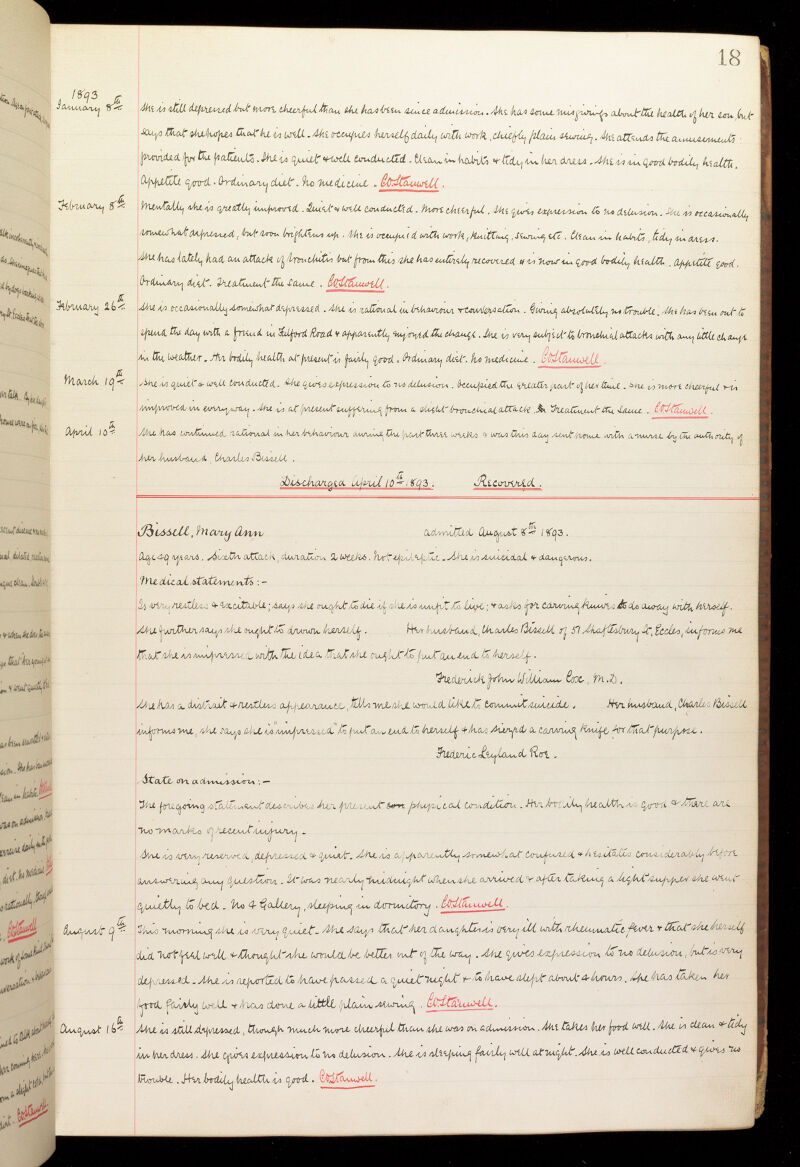 18
1893
January 8th She is still depressed but more cheerful than she has been since admission. She has some misgivings about the health of her son, but
says that she hopes that he is well. She occupies herself daily with work, chiefly plain sewing. She attends the amusements
provided for the patients. She is quiet & well conducted. Clean in habits & tidy in her dress. She is in good bodily health.
Appetite good. Ordinary diet. No medicine. COStanwell.
February 8th Mentally she is greatly improved. Quiet & well conducted. More cheerful. She gives expression to no delusion. She is occasionally
somewhat depressed, but soon brightens up. She is occupied with work, knitting, sewing etc. Clean in habits, tidy in dress.
She has lately had an attack of bronchitis but from this she has entirely recovered & is now in good bodily health. Appetite good.
Ordinary diet. Treatment the same. COStanwell.
February 26th She is occasionally somewhat depressed. She is rational in behaviour & conversation. Giving absolutely no trouble. She has been out to
spend the day with a friend in Tilford Road & apparently enjoyed the change. She is very subject to bronchial attacks with any little change
in the weather. Her bodily health at present is fairly good. Ordinary diet. No medicine. COStanwell.
March 19th She is quiet & well conducted. She gives expression to no delusion. Occupied the greater part of her time. She is more cheerful & is
improved in every way. She is at present suffering from a slight bronchial attack. Treatment the same. COStanwell.
April 10th She has continued rational in her behaviour during the past three weeks & was this day sent home with a nurse by the authority of
her husband Charles Bissell.
Discharged April 10th 1893. Recovered.
Bissell, Mary Ann admitted August 8th 1893.
Age 49 years. Sixth attack, duration 2 weeks. Not epileptic. She is suicidal & dangerous.
Medical statements:-
Is very restless & excitable; says she ought to die if she is unfit to live; & asks for carving knives to do away with herself.
She further says she ought to drown herself. Her husband, Charles Bissell of 57 Shaftesbury St, Eccles, informs me
that she is impressed with the idea that she ought to put an end to herself.
Frederick John William Cox, M.D.
She has a distrait & restless appearance, tells me she would like to commit suicide. Her husband, Charles Bissell
informs me, she says she is "impressed" to put an end to herself & has sierged a carving knife for that purpose.
Frederic Leyland Roe.
State on admission:-
The foregoing statement describes her present physical condition. Her bodily health is good & there are
no marks of recent injury.
She is very reserved, depressed & quiet. She is apparently somewhat confused & hesitates considerably before
answering any question. It was nearly midnight when she arrived & after taking a light supper she went
quietly to bed. No 4 Gallery, sleeping in dormitory. COStanwell.
August 9th This morning she is very quiet. She says that her daughter is very ill with rheumatic fever & that she herself
did not feel well & thought she would be better out of the way. She gives expression to no delusion, but is very
depressed. She is reported to have passed a quiet night & to have slept about 4 hours. She has taken her
food fairly well & has done a little plain sewing. COStanwell.
August 16th She is still depressed, though much more cheerful than she was on admission. She takes her food well. She is clean & tidy
in her dress. She gives expression to no delusion. She is sleeping fairly well at night. She is well conducted & gives no
trouble. Her bodily health is good. COStanwell.